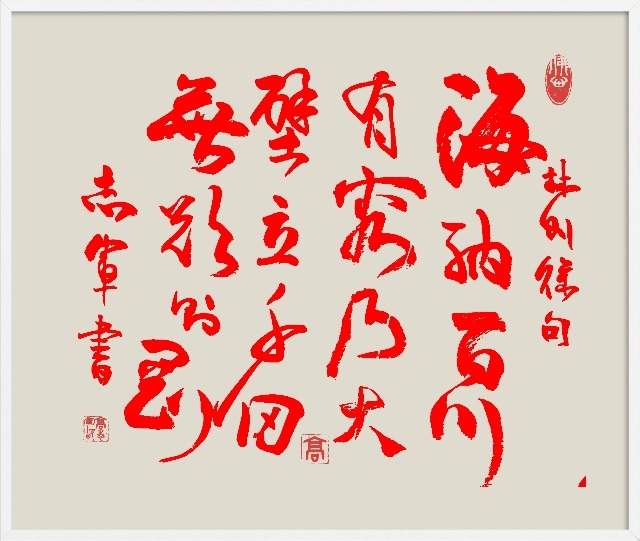 林则徐句
海纳百川
有容乃大
壁立千仞
無欲则刚
志軍書
高